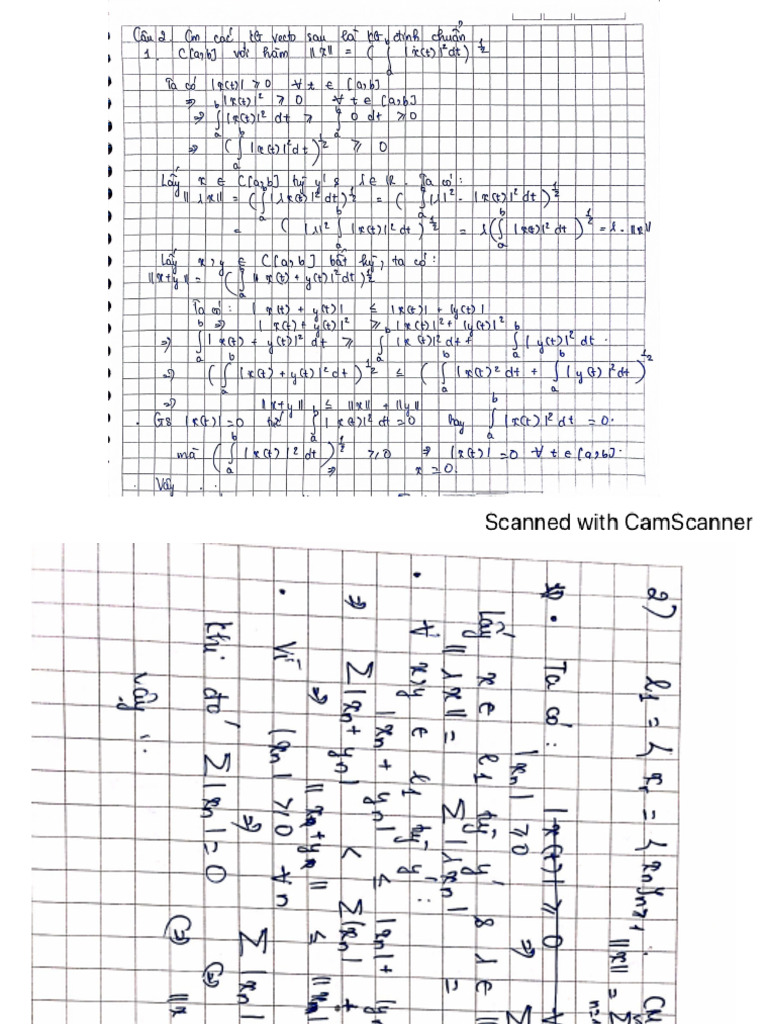 Câu 2. Cm các kg vectơ sau là kg định chuẩn
1. C[a,b] với hàm ||x|| = (∫_a^b |x(t)|² dt)^{1/2}
Ta có |x(t)| ≥ 0 ∀ t ∈ [a,b]
⇒ |x(t)|² ≥ 0 ∀ t ∈ [a,b]
⇒ ∫_a^b |x(t)|² dt ≥ ∫_a^b 0 dt ≥ 0
⇒ (∫_a^b |x(t)|² dt)^{1/2} ≥ 0
Lấy x ∈ C[a,b] tùy ý & λ ∈ R. Ta có:
||λx|| = (∫_a^b |λx(t)|² dt)^{1/2} = (∫_a^b |λ|². |x(t)|² dt)^{1/2}
= (|λ|² ∫_a^b |x(t)|² dt)^{1/2} = λ(∫_a^b |x(t)|² dt)^{1/2} = λ.||x||
Lấy x,y ∈ C[a,b] bất kỳ, ta có:
||x+y|| = (∫_a^b |x(t) + y(t)|² dt)^{1/2}
Ta có: |x(t) + y(t)| ≤ |x(t)| + |y(t)|
⇒ |x(t) + y(t)|² ≥ |x(t)|² + |y(t)|²
⇒ ∫_a^b |x(t) + y(t)|² dt ≥ ∫_a^b |x(t)|² dt + ∫_a^b |y(t)|² dt.
⇒ (∫_a^b |x(t) + y(t)|² dt)^{1/2} ≤ (∫_a^b |x(t)|² dt + ∫_a^b |y(t)|² dt)^{1/2}
⇒ ||x+y|| ≤ ||x|| + ||y||
. GS |x(t)| = 0 thì ∫_a^b |x(t)|² dt = 0 hay ∫_a^b |x(t)|² dt = 0.
mà (∫_a^b |x(t)|² dt)^{1/2} ≥ 0 ⇒ |x(t)| = 0 ∀ t ∈ [a,b].
⇒ x = 0.
. Vậy . .
Scanned with CamScanner
2) l₁ = { x = {xn}n≥1 :
||x|| = Σ
. Ta có: |x(t)| ≥ 0
|xn| ≥ 0 ⇒ Σ
Lấy x ∈ l₁ tùy ý & λ ∈
||λx|| = Σ|λxn| =
. ∀ x,y ∈ l₁ tùy ý:
|xn + yn| ≤ |xn| +
⇒ Σ|xn + yn| < Σ|xn| +
⇒ ||x+y|| ≤
. Vì |xn| ≥ 0 ∀n
⇒ Σ|xn|
khi đó Σ|xn| = 0 ⇔
⇔ ||x
Vậy ..